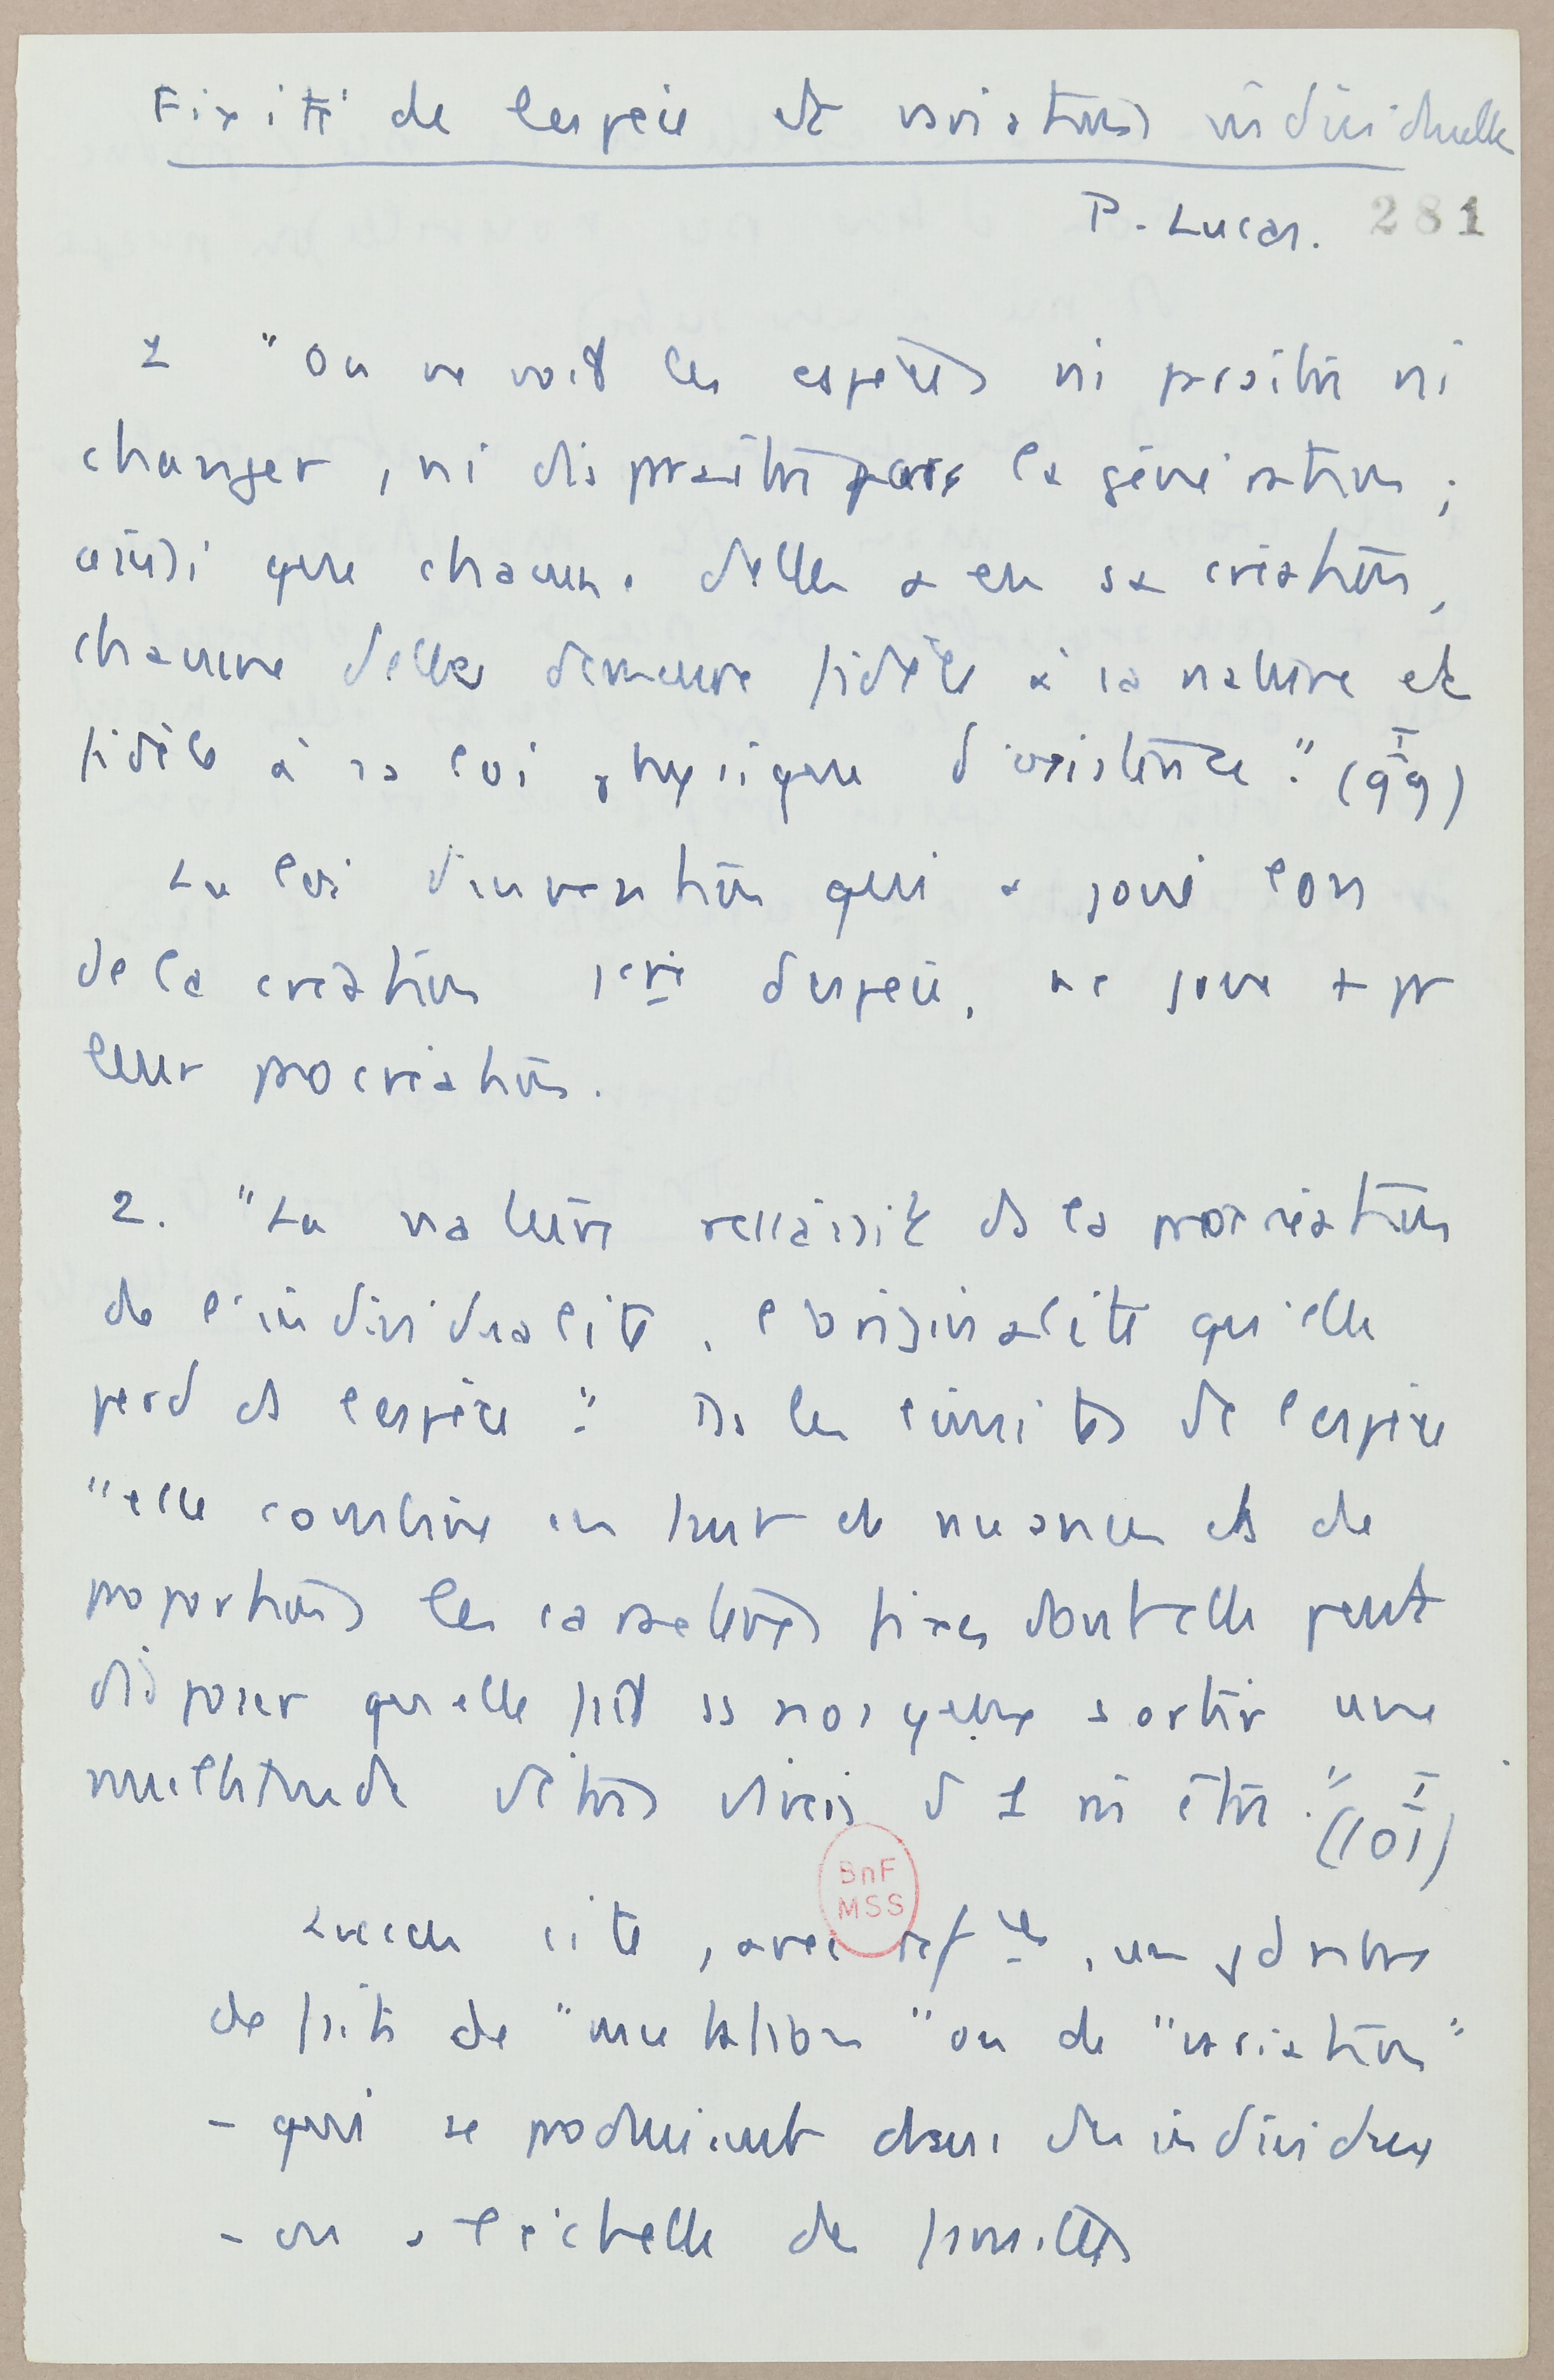 Fixité de l'espèce et variations individuelle
P. Lucas. 281
1 "On ne voit les espèces ni paraître ni
changer, ni disparaître par la génération ;
ainsi que chacune d'elles a eu sa création,
chacune d'elles demeure fidèle à sa nature et
fidèle à sa loi physique d'existence." (I 99)
La loi d'invention qui a joué lors
de la création 1ère d'espèce, ne joue + pr
leur procréation.
2. "La nature ressaisit ds la procréation
de l'individualité, l'originalité qu'elle
perd ds l'espèce". Ds les limites de l'espèce
"elle combine en tant de nuances et de
proportions les caractères fixes dont elle peut
disposer qu'elle fait ss nos yeux sortir une
multitude d'êtres divers d'1 m être." (I 101)
BnF
MSS
Lucas cite, avec réf, un gd nbre
de faits de " " ou de "variation"
- qui se produisent dans des individus
- ou à l'échelle des familles